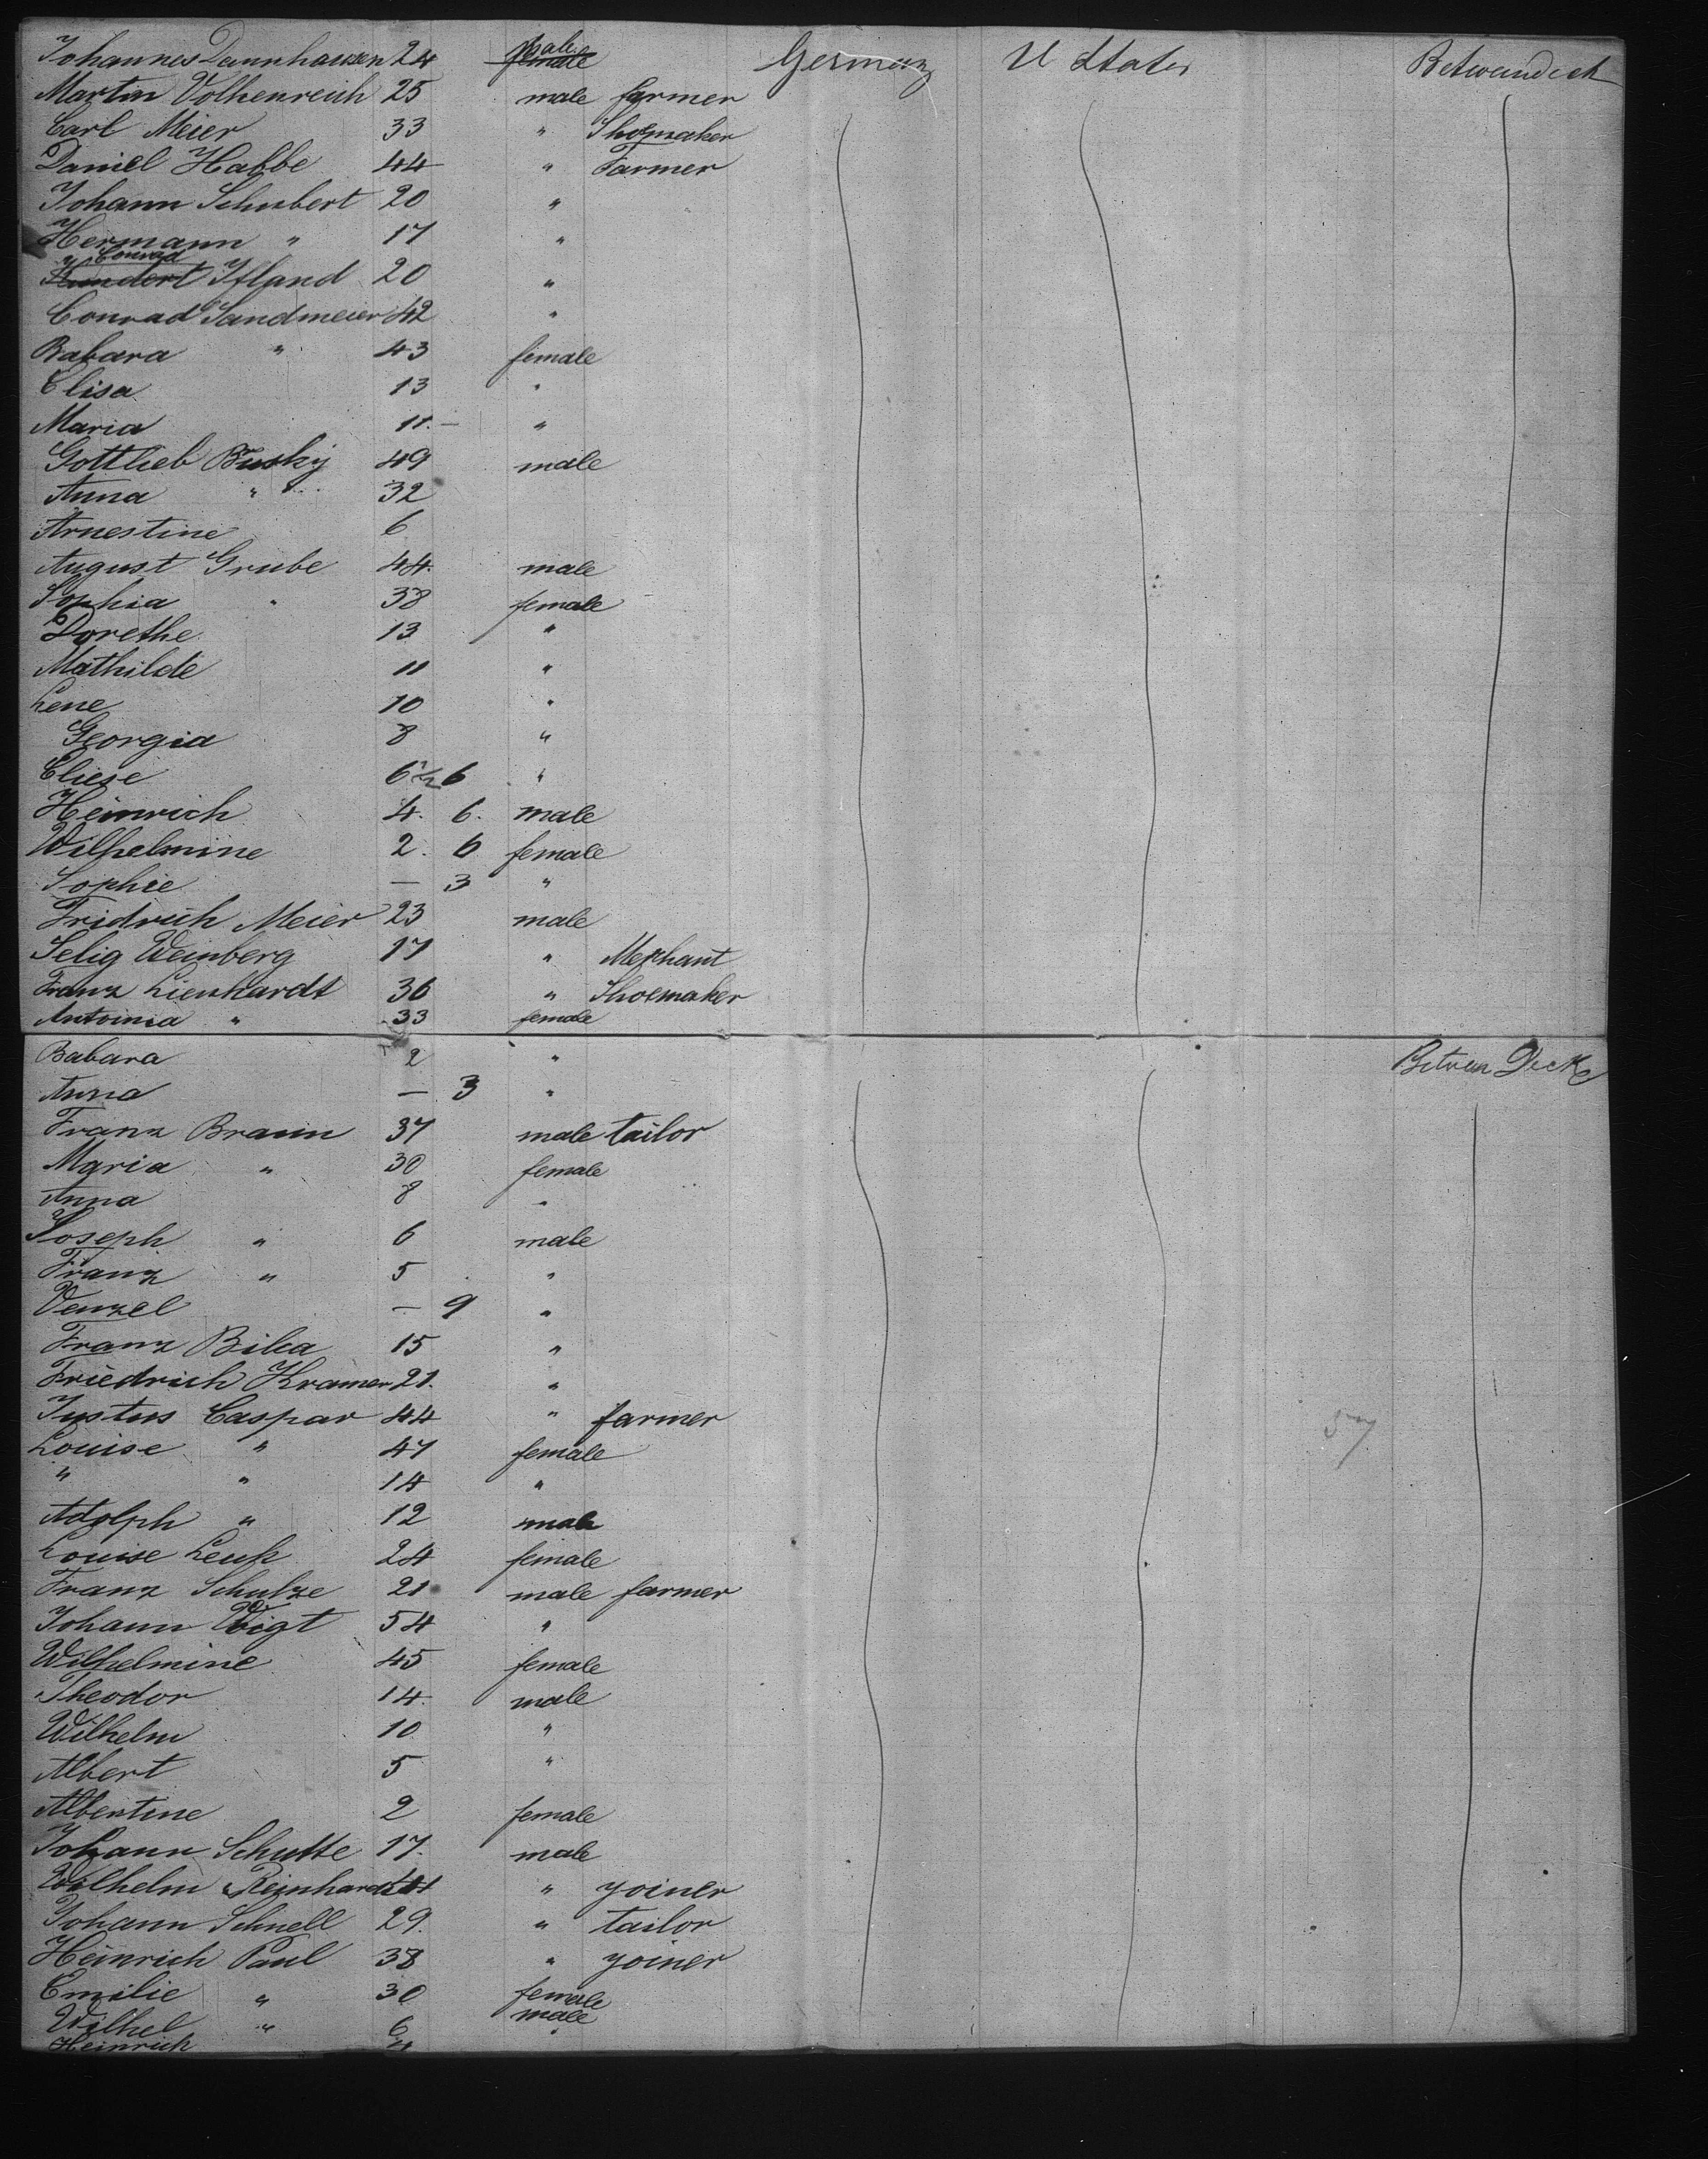 Johannes Dannhausen 24 male Germany U States Betweendeck
Martin Volkenreich 25 male farmer
Carl Meier 33 " Shoemaker
Daniel Habbe 44 " Farmer
Johann Schubert 20 "
Hermann " 17 "
Conrad Ifland 20 "
Conrad Sandmeier 42 "
Babara " 43 female
Elisa 13 "
Maria 11. — "
Gottlieb Busky 49 male
Anna " 32
Arnestine 6
August Grube 44. male
Sophia " 38 female
Dorethe 13 "
Mathilde 11 "
Lene 10 "
Georgia 8 "
Eliese 6 6 "
Heinrich 4. 6. male
Wilhelmine 2. 6 female
Sophie — 3 "
Fridrich Meier 23 male
Selig Weinberg 17 " Merchant
Franz Lienhardt 36 " Shoemaker
Antoinia " 33 female
Babara 2 " Betwen Deck
Anna — 3 "
Franz Braun 37 male tailor
Maria " 30 female
Anna 8 "
Joseph " 6 male
Franz " 5 "
Venzel — 9 "
Franz Bilea 15 "
Friedrich Kramer 21. "
Justus Caspar 44 " farmer
Louise " 47 female 57
" " 14 "
Adolph " 12 male
Louise 24 female
Franz Schulze 21 male farmer
Johann Voigt 54 "
Wilhelmine 45 female
Theodor 14. male
Wilhelm 10 "
Albert 5 "
Albertine 2 female
Johann Schutte 17. male
Wilhelm Reinhardt " yoiner
Johann Schnell 29. " tailor
Heinrich Paul 38 " yoiner
Emilie " 30 female
Wilhel " 6 male
Heinrich "